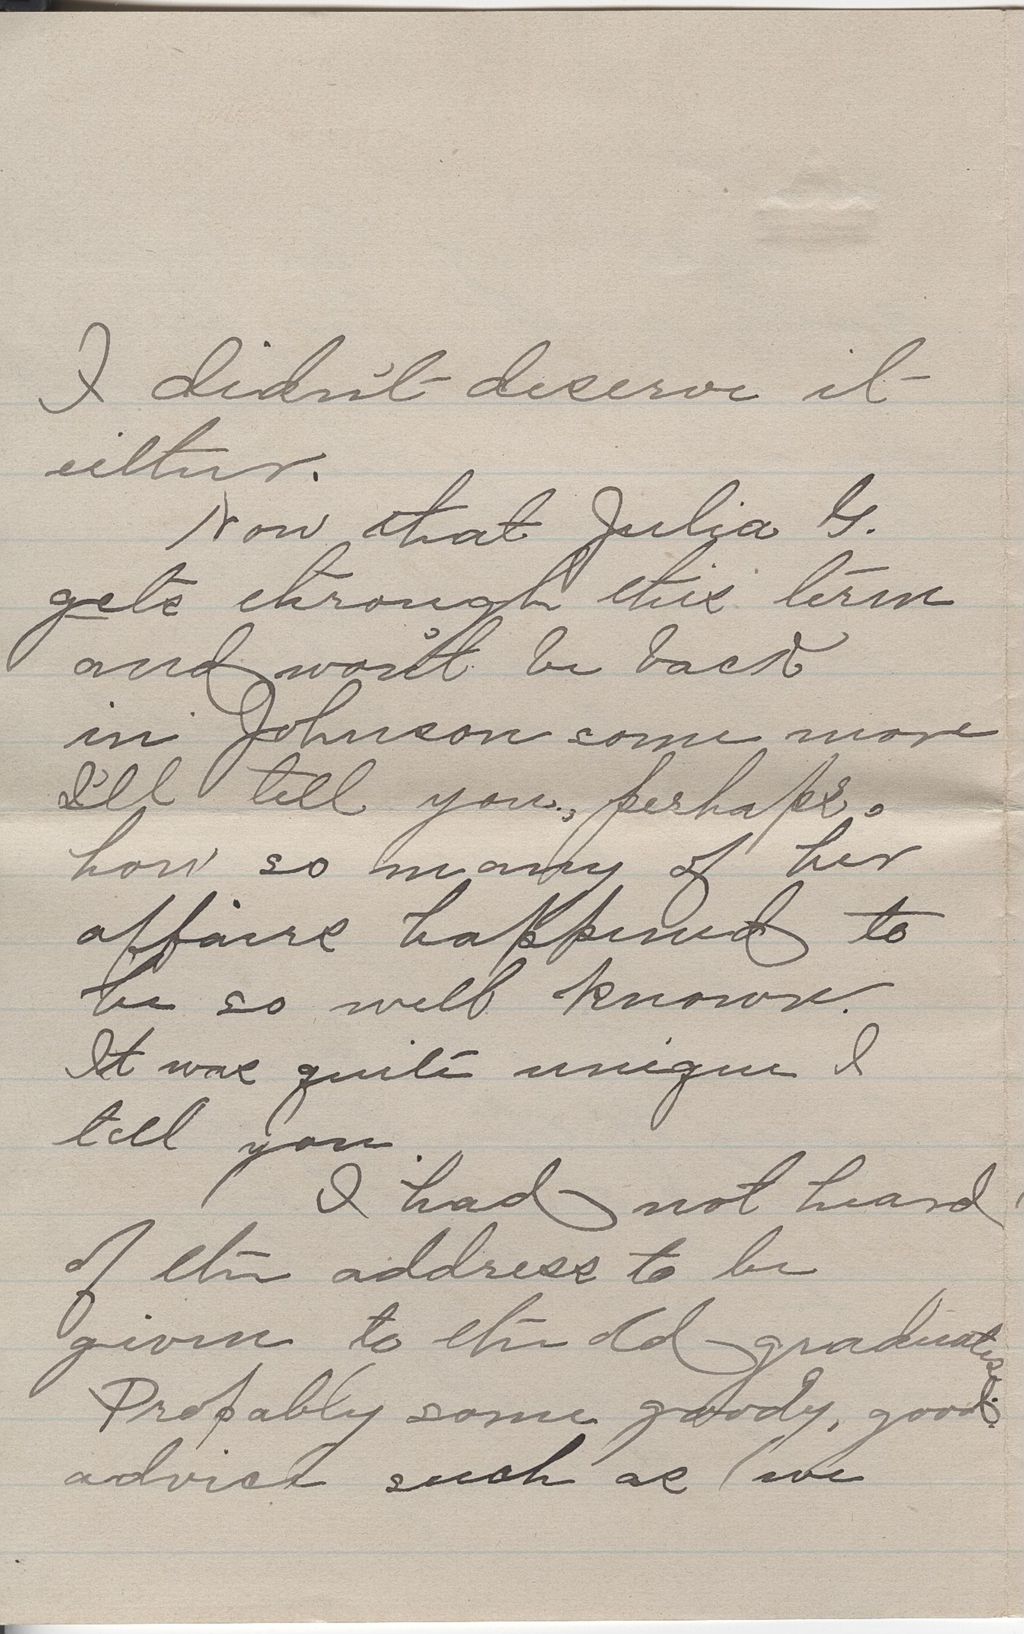 I didn't deserve it
either.
Now that Julia G.
gets through this term
and won't be back
in Johnson some more
I'll tell you, perhaps,
how so many of her
affairs happened to
be so well known.
It was quite unique I
tell you.
I had not heard
of the address to be
given to the old graduates.
Probably some goody, good
advice such as we